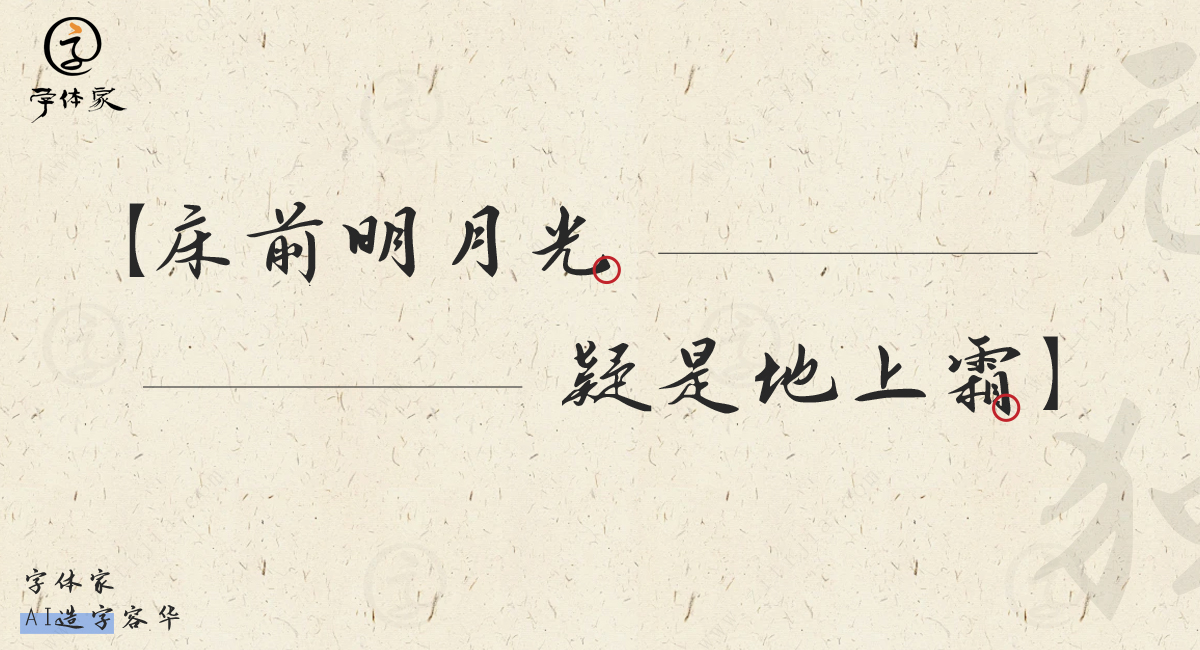 字
字体家
【床前明月光
疑是地上霜】
字体家
AI造字容华